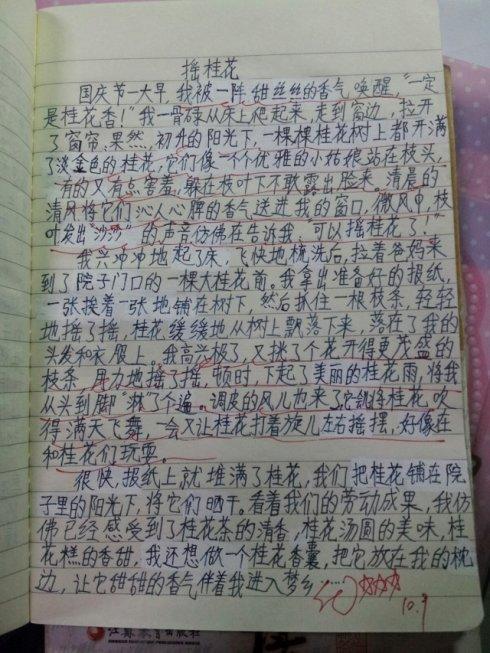 摇桂花
国庆节一大早，我被一阵甜丝丝的香气唤醒，“一定
是桂花香！”我一骨碌从床上爬起来，走到窗边，拉开
了窗帘。果然，初升的阳光下，一棵棵桂花树上都开满
了淡金色的桂花，它们像一个个优雅的小姑娘站在枝头，
有的又有点害羞，躲在枝叶下不敢露出脸来。清晨的
清风将它们沁人心脾的香气送进我的窗口，微风中，枝
叶发出“沙沙”的声音仿佛在告诉我，可以摇桂花了。”
我兴冲冲地起了床，飞快地梳洗后，拉着爸妈来
到了院子门口的一棵大桂花前。我拿出准备好的报纸，
一张挨着一张地铺在树下，然后抓住一根枝条，轻轻
地摇了摇，桂花缓缓地从树上飘落下来，落在了我的
头发和衣服上。我高兴极了，又挑了个花开得更茂盛的
枝条，用力地摇了摇，顿时，下起了美丽的桂花雨，将我
从头到脚“淋”了个遍。调皮的风儿也来了，它们将桂花吹
得满天飞舞，一会又让桂花打着旋儿左右摇摆，好像在
和桂花们玩耍。
很快，报纸上就堆满了桂花，我们把桂花铺在院
子里的阳光下，将它们晒干。看着我们的劳动成果，我仿
佛已经感受到了桂花茶的清香，桂花汤圆的美味，桂
花糕的香甜，我还想做一个桂花香囊，把它放在我的枕
边，让它甜甜的香气伴着我进入梦乡……
10.9
江苏教育出版社